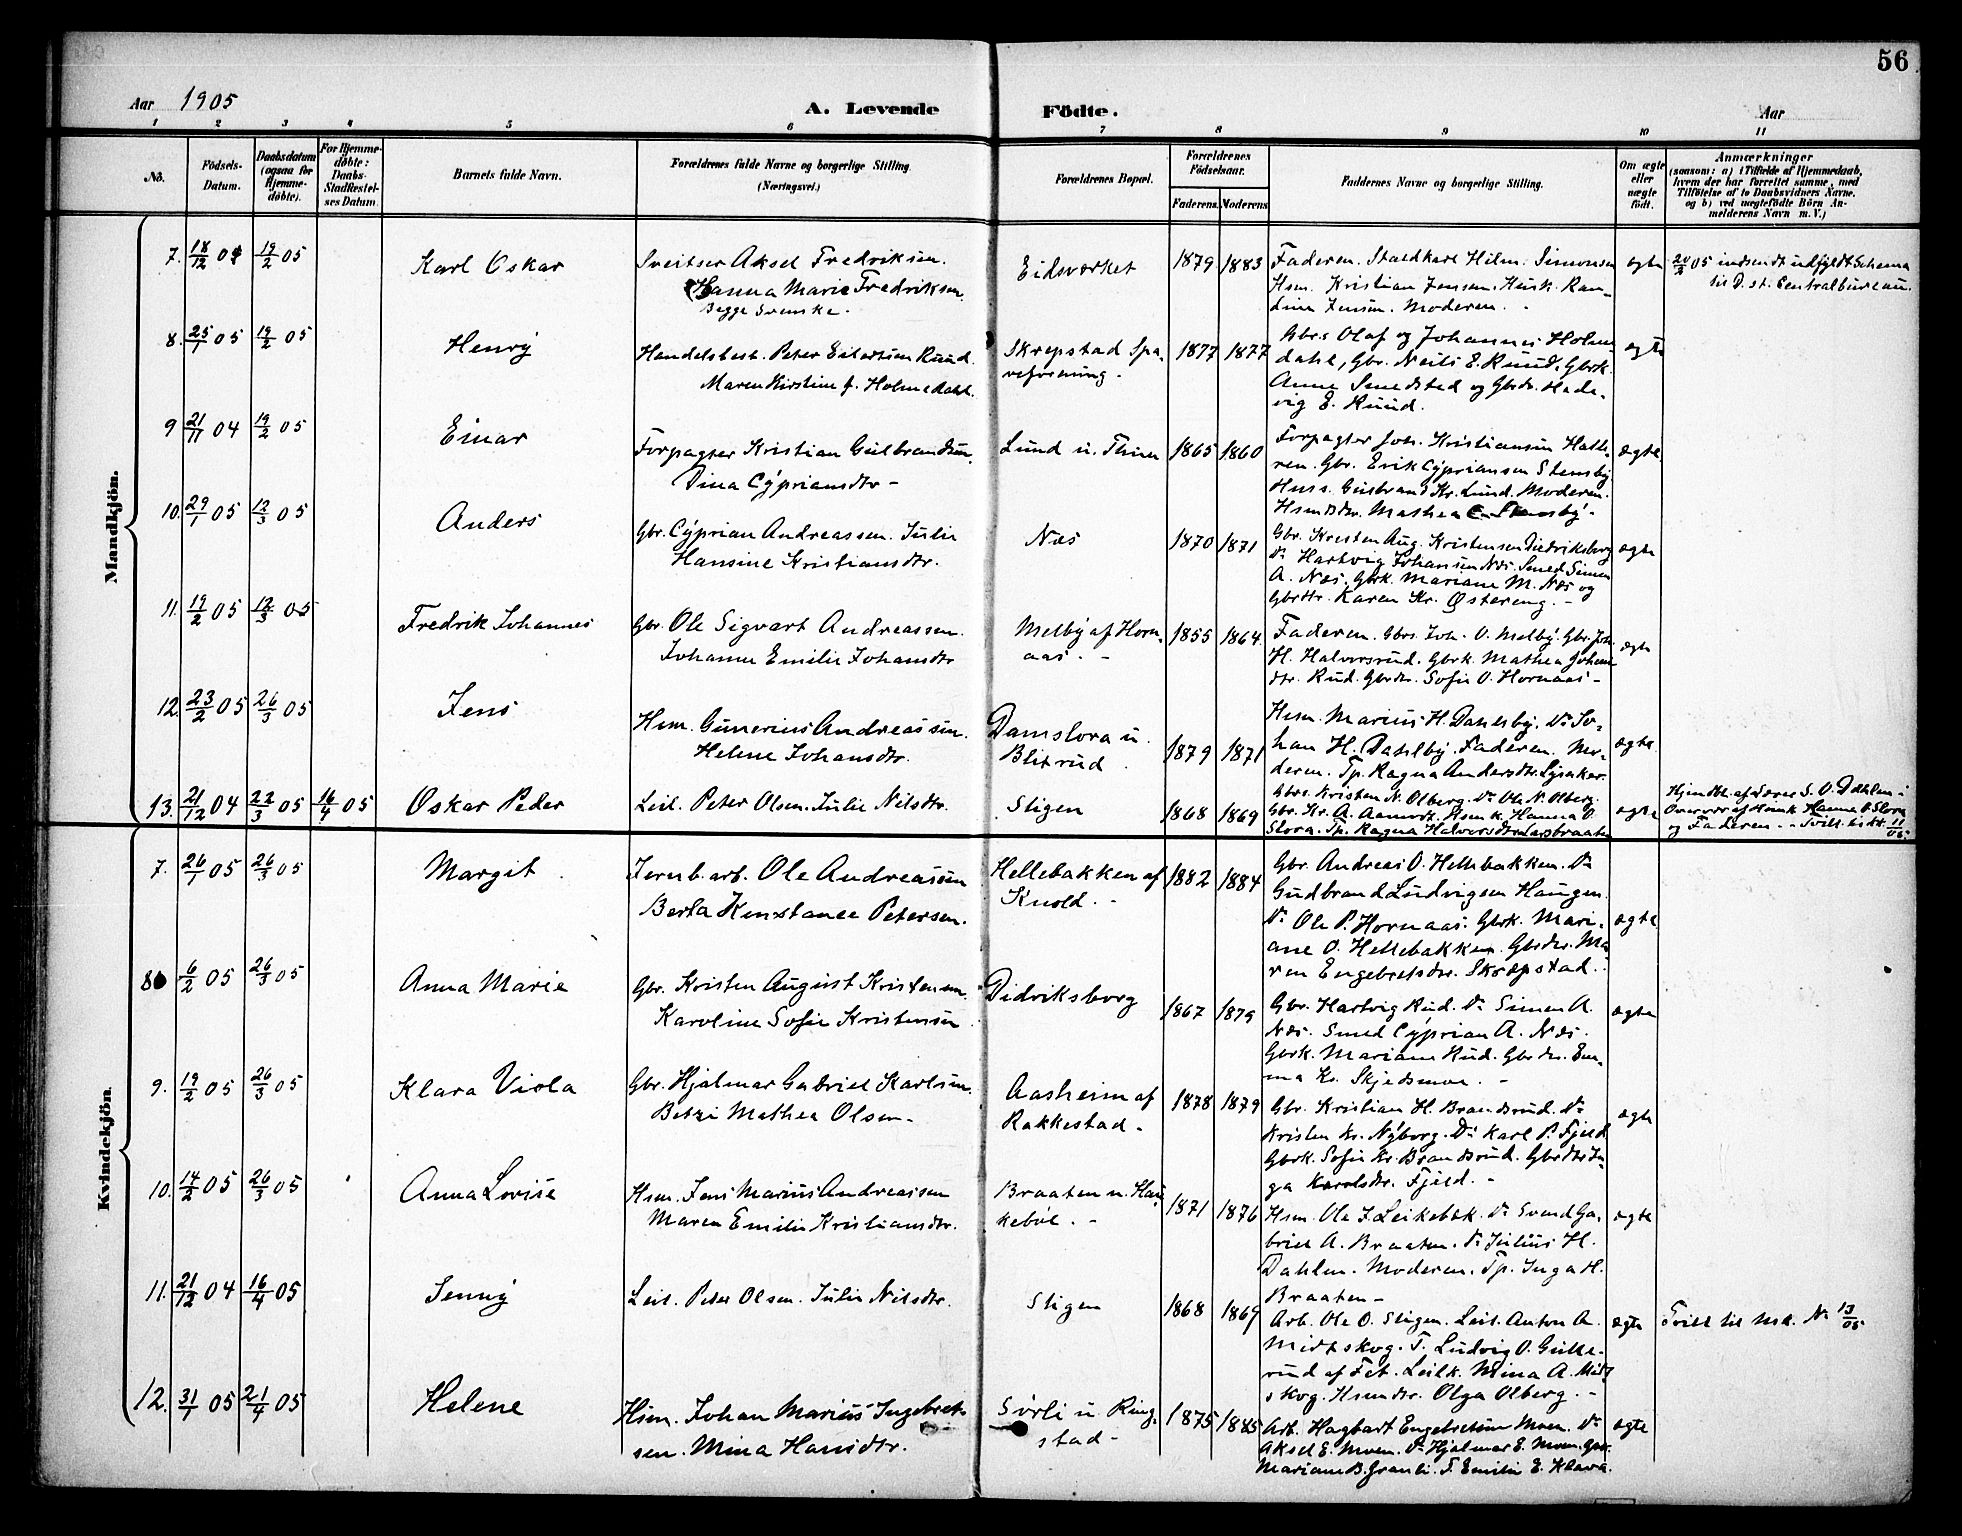 56
Aar 1905
A. Levende Födte.
Aar
1 2 3 4 5 6 7 8 9 10 11
No.
Födsels-
Datum.
Daabsdatum
(ogsaa for
Hjemme-
døbte).
For Hjemme-
døbte:
Daabs-
Stadfæstel-
ses Datum.
Barnets fulde Navn.
Forældrenes fulde Navne og borgerlige Stilling.
(Næringsvei.)
Forældrenes Bopæl.
Forældrenes
Födselsaar.
Faderens. Moderens.
Faddernes Navne og borgerlige Stilling.
Om ægte
eller
uægte
født.
Anmærkninger
(saasom: a) i Tilfælde af Hjemmedaab,
hvem der har forrettet samme, med
Tilföielse af to Daabsvidners Navne,
og b) ved uægtefödte Börn An-
melderens Navn m. V.)
Mandkjön.
7. 18/12 04 19/2 05 Karl Oskar
Sveitser Aksel Fredriksen.
Hanna Marie Fredriksen.
Begge Svenske.
Eidsværket 1879 1883
Faderen. Staldkarl Hilm. Simonsen
Hsm. Kristian Jensen. Husk. Ran-
dine Jensen. Moderen. -
ægte
20/2 05 indsendt udfyldt Schema
til D. st. Centralbureau.
8. 25/1 05 19/2 05 Henry
Handelsbest. Peter Eilertsen Ruud.
Maren Kirstine f. Holmedahl.
Skrepstad Spa-
reforening. -
1877 1877
Gbrs Olaf og Johannes Holme
dahl, Gbr. Neils E. Ruud, Gbrk.
Anna Smedstad og Gbrdr. Hade-
vig E. Ruud.
ægte
9 21/11 04 19/2 05 Einar
Forpagter Kristian Gulbrandsen.
Dina Cypriansdtr -
Lund u. Thien 1865 1860
Forpagter Joh. Kristiansen Halle-
ren. Gbr. Erik Cypriansen Stensby
Husm. Gulbrand Kr. Lund. Moderen.
Hsmdtr. Mathea C. Stensby. -
ægte.
10. 29/1 05 12/3 05 Anders
Gbr. Cyprian Andreassen. Julie
Hansine Kristiansdtr.
Næs 1870 1871
Gbr. Kristen Aug. Kristensen Diedriksborg
Do Hartvig Johansen Næs. Smed Simen
A. Næs. Gbrk. Mariane M. Næs og
Gbrdtr. Karen Kr. Østereng. -
ægte
11. 19/2 05 12/3 05 Fredrik Johannes
Gbr. Ole Sigvart Andreassen.
Johanne Emilie Johansdtr
Melby af Horn-
aas. -
1855 1864
Faderen. Gbrs. Joh. O. Melby. Gbr. Joh.
H. Halvorsrud. Gbrk. Mathea Johan
dtr. Rud. Gbrdtr. Sofie O. Hornaas -
ægte
12. 23/2 05 26/3 05 Jens
Hsm. Gunerius Andreassen.
Helene Johansdtr.
Damslora u.
Blixrud.
1879 1871
Hsm. Marius H. Dahlsby. Do Jo-
han H. Dahlby. Faderen. Mo-
deren. Tp. Ragna Andersdtr. Lysaker.
ægte
13. 21/12 04 22/3 05 16/4 05 Oskar Peder
Leil. Peter Olsen. Julie Nilsdtr.
Stigen 1868 1869
Gbrs. Kristen N. Olberg. Do Ole N. Olberg.
Gbr. Kr. A. Aamodt. Hsmk. Hanna O.
Slora. Tp. Ragna Halvorsdtr Larsbraaten
ægte
Hjmdbt. af Lærer S. O. Dahlen i
Overvær af Hsmk. Hanna O. Slora
og Faderen. - Tvill. til Kk. 11/05.
Kvindekjön.
7. 26/1 05 26/3 05 Margit
Jernb. arb. Ole Andreassen
Berta Konstance Petersen.
Hellebakken af
Knold. -
1882 1884
Gbr. Andreas O. Hellebakken. Do
Gudbrand Ludvigsen Haugen.
Do Ole P. Hornaas. Gbrk. Mari-
ane O. Hellebakken. Gbrdtr. Ma
ren Engebretsdtr. Skrepstad.
ægte
8 6/2 05 26/3 05 Anna Marie
Gbr. Kristen August Kristensen.
Karoline Sofie Kristensen
Didriksborg 1867 1879
Gbr. Hartvig Rud. Do Simen A.
Næs. Smed Cyprian A. Næs.
Gbrk. Mariane Rud. Gbrdtr. Em-
ma Kr. Skjedsmoe. -
ægte
9. 19/2 05 26/3 05 Klara Viola
Gbr. Hjalmar Gabriel Karlsen.
Betzi Mathea Olsen -
Aasheim af
Rakkestad -
1878 1879
Gbr. Kristian H. Brandsrud. Do
Kristen Kr. Nyborg. Do Karl P. Fjeld
Gbrk. Sofie Kr. Brandsrud. Gbrdtr In-
ga Karlsdtr. Fjeld. -
ægte
10. 14/2 05 26/3 05 Anna Lovise
Hsm. Jens Marius Andreassen
Maren Emilie Kristiansdtr.
Braaten u. Hau
kebøl. -
1871 1876
Hsm. Ole J. Leikebæk. Do Svend Ga-
briel A. Braaten. Do Julius H.
Dahlen. Moderen. Tp. Inga H.
Braaten -
ægte
11. 21/12 04 16/4 05 Jenny
Leil. Peter Olsen. Julie Nilsdtr.
Stigen 1868 1869
Arb. Ole O. Stigen. Leil. Anton A.
Midtskog. T. Ludvig O. Gulle-
rud af Fet. Leilk. Mina A. Midt
skog. Hsmdtr. Olga Olberg. -
ægte
Tvill til Mk. No 13/05
12. 31/1 05 21/4 05 Helene
Hsm. Johan Marius Ingebret-
sen. Mina Hansdtr.
Sörli u. Ring-
stad -
1875 1885
Arb. Hagbart Engebretsen Moen. Do
Aksel E. Moen. Do Hjalmar E. Moen. Gbr.
Mariane B. Granli. T. Emilie E. Klava.
ægte